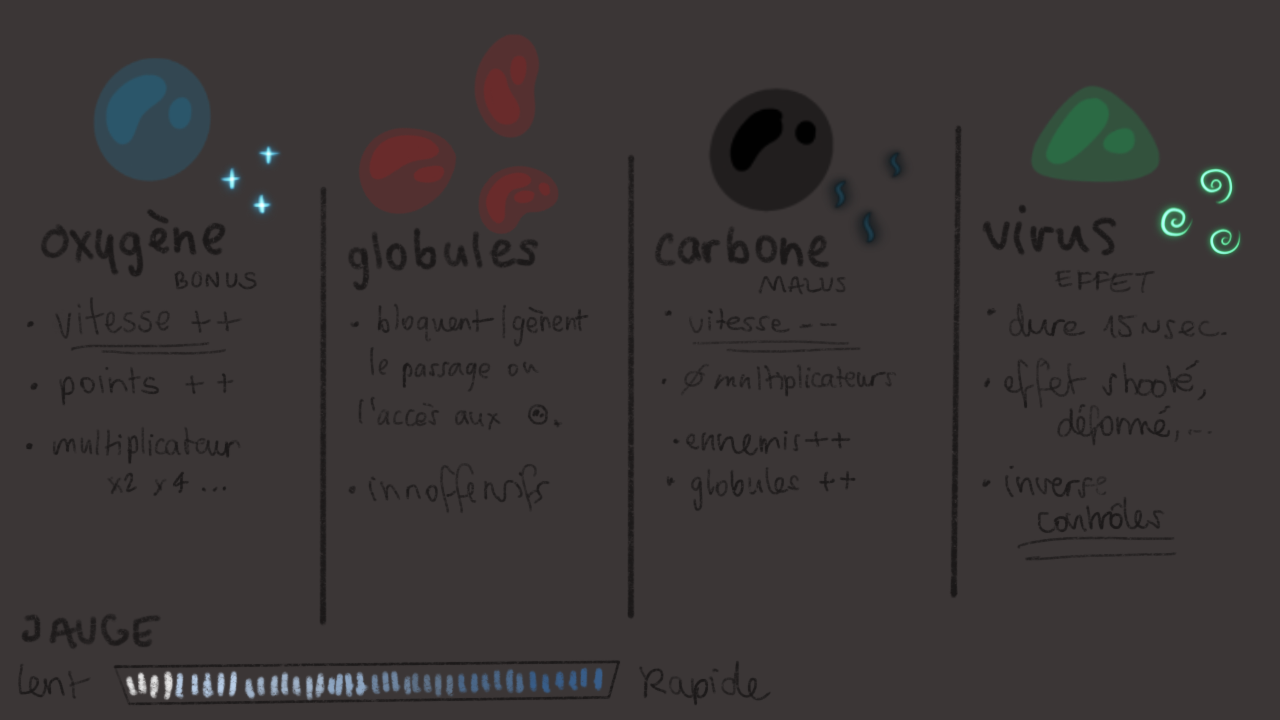 oxygène
BONUS
• vitesse ++
• points ++
• multiplicateur
x2 x4 ...
globules
• bloquent/gènent
le passage ou
l'accès aux
• innoffensifs
carbone
MALUS
• vitesse --
• Ø multiplicateurs
• ennemis++
• globules ++
virus
EFFET
• dure 15 sec.
• effet shooté,
déformé,...
• inverse
contrôles
JAUGE
lent
Rapide